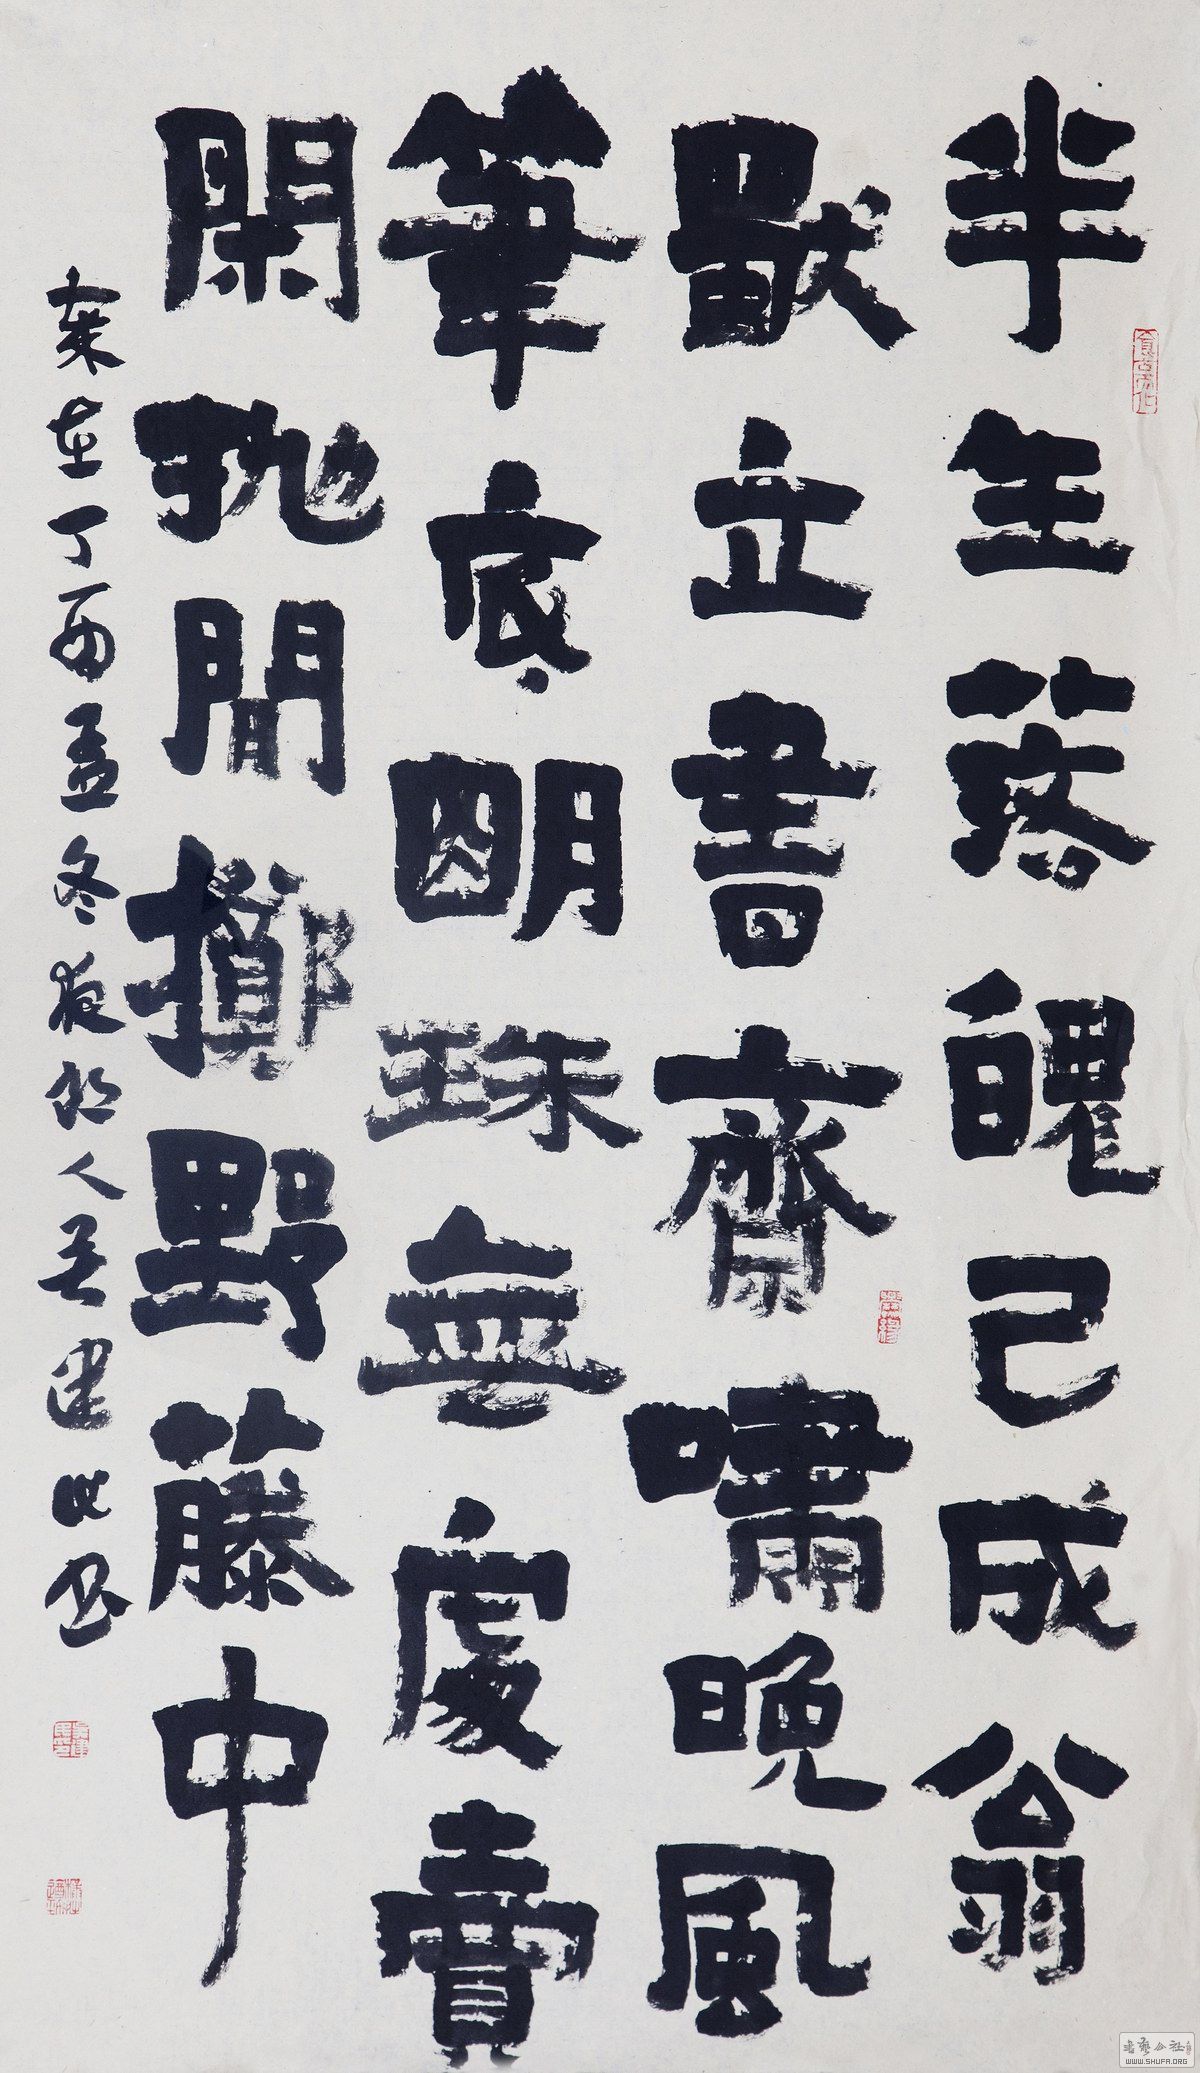 半生落魄已成翁
獨立書齋嘯晚風
筆底明珠無處賣
閑拋閒擲野藤中
歲在丁酉孟冬夜郎人吴建民书
書藝公社
WWW.SHUFA.ORG